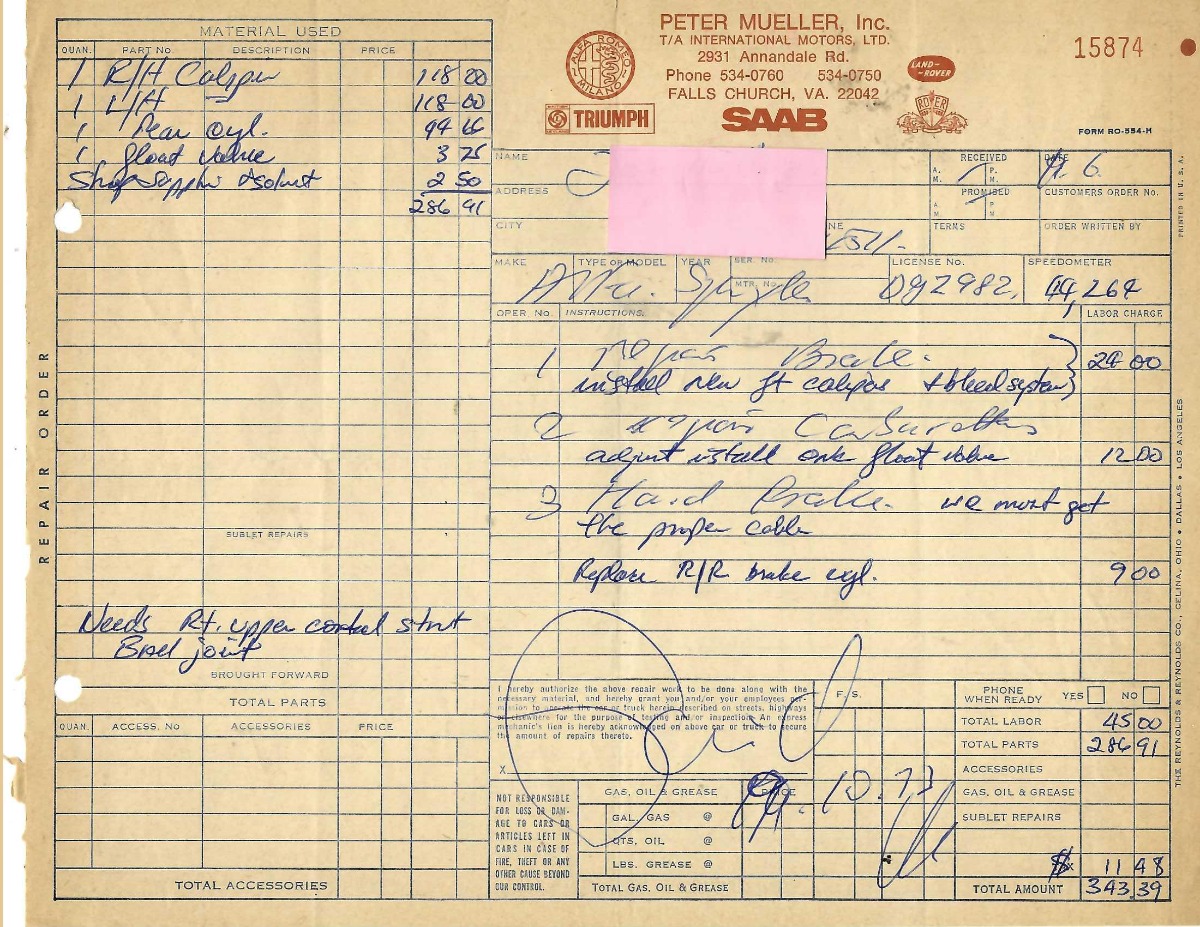 PETER MUELLER, Inc.
T/A INTERNATIONAL MOTORS, LTD.
2931 Annandale Rd.
Phone 534-0760 534-0750
FALLS CHURCH, VA. 22042
ALFA ROMEO
MILANO
TRIUMPH
SAAB
LAND-ROVER
ROVER
15874
FORM RO-554-H
PRINTED IN U.S.A.
REPAIR ORDER
MATERIAL USED
QUAN. PART No. DESCRIPTION PRICE
1 R/H Caliper 118 00
1 L/H 118 00
1 Rear cyl. 44 66
1 float valve 3 75
Shop 2 50
286 91
SUBLET REPAIRS
Needs Rt. upper control strut
Ball joint
BROUGHT FORWARD
TOTAL PARTS
QUAN. ACCESS. No ACCESSORIES PRICE
TOTAL ACCESSORIES
NAME
ADDRESS
CITY
RECEIVED
A. M. P. M.
PROMISED
A M P M
TERMS
DATE
6
CUSTOMERS ORDER No.
ORDER WRITTEN BY
MAKE TYPE OR MODEL YEAR SER. No. LICENSE No. SPEEDOMETER
MTR. No.
Alfa Spyder 44,264
OPER. No. INSTRUCTIONS: LABOR CHARGE
1 Repair Brake. 24 00
install new ft calipers + bleed system
2 repair Carburettors
adjust install one float valve 12 00
3 Hand Brake. we must get
the proper cable
Replace R/R brake cyl. 9 00
I hereby authorize the above repair work to be done along with the
necessary material, and hereby grant you and/or your employees per-
mission to operate the car or truck herein described on streets, highways
or elsewhere for the purpose of testing and/or inspection. An express
mechanic's lien is hereby acknowledged on above car or truck to secure
the amount of repairs thereto.
X
F. S.
PHONE WHEN READY YES NO
TOTAL LABOR 45 00
TOTAL PARTS 286 91
ACCESSORIES
GAS, OIL & GREASE
SUBLET REPAIRS
11 48
TOTAL AMOUNT 343.39
NOT RESPONSIBLE
FOR LOSS OR DAM-
AGE TO CARS OR
ARTICLES LEFT IN
CARS IN CASE OF
FIRE, THEFT OR ANY
OTHER CAUSE BEYOND
OUR CONTROL.
GAS, OIL & GREASE PRICE
GAL. GAS @
QTS. OIL @
LBS. GREASE @
TOTAL GAS, OIL & GREASE
THE REYNOLDS & REYNOLDS CO., CELINA, OHIO • DALLAS • LOS ANGELES